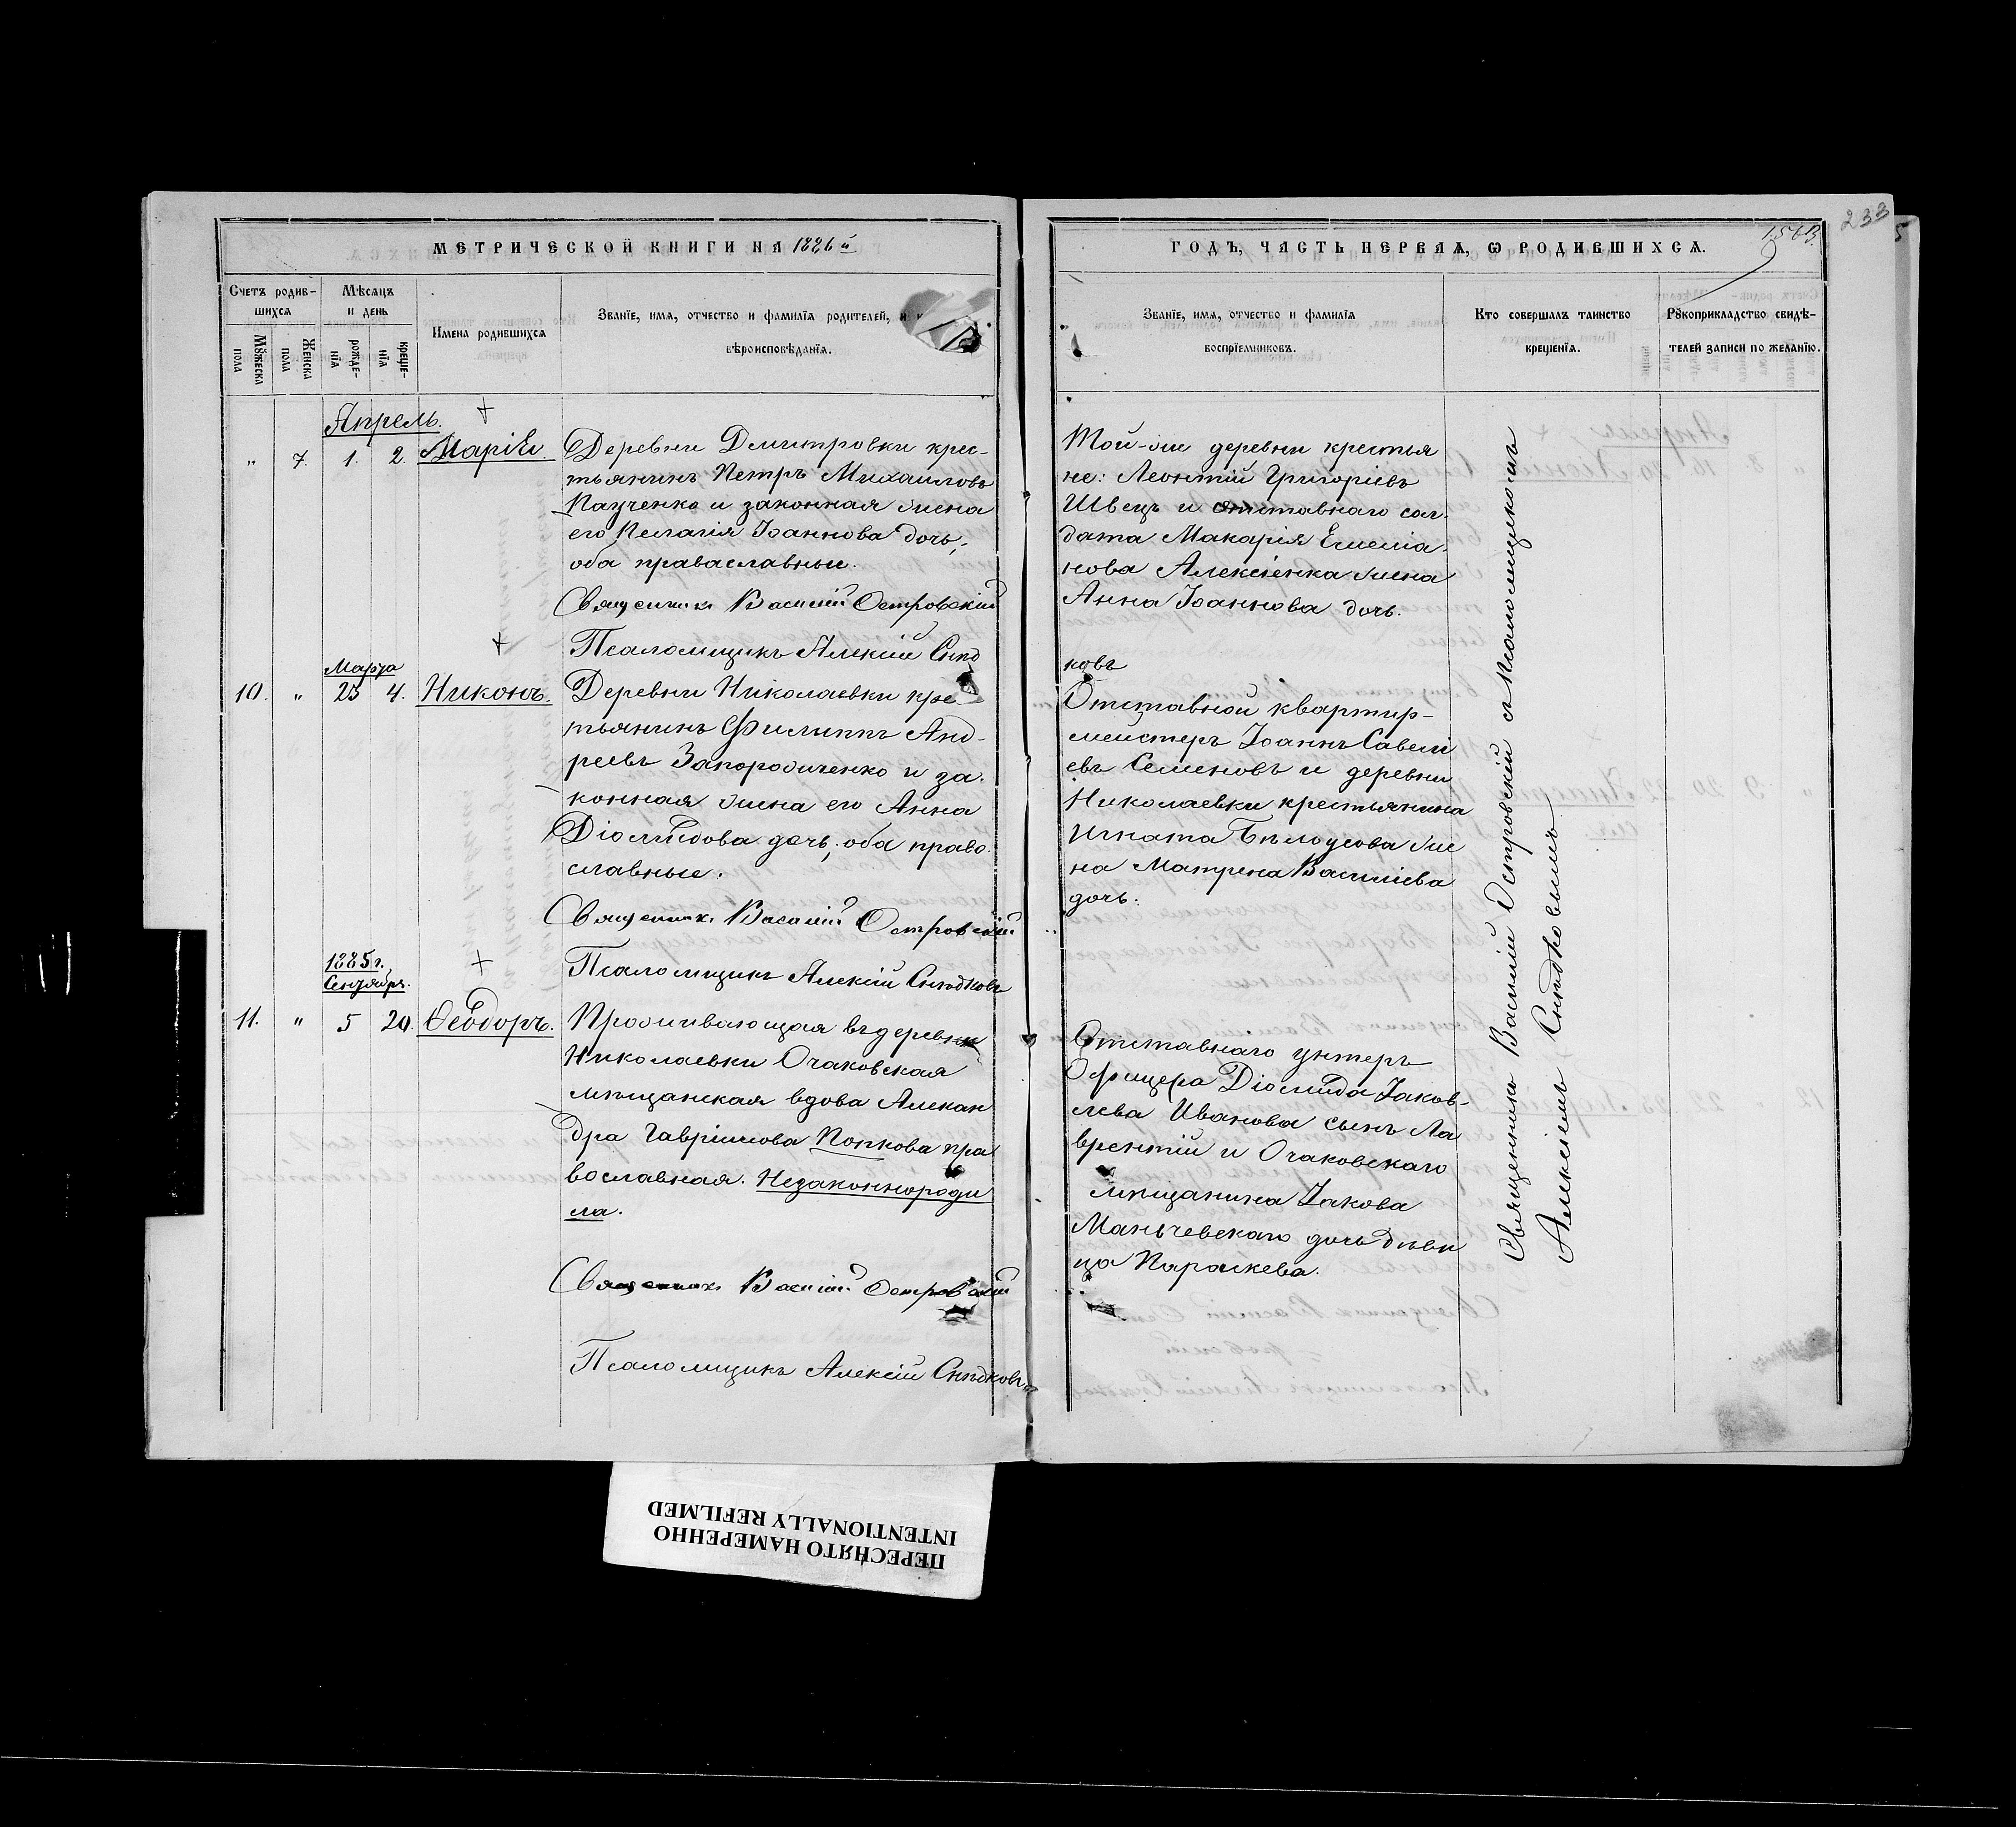 233
1563
МЕТРИЧЕСКОЙ КНИГИ НА 1886 й
ГОДЪ, ЧАСТЬ ПЕРВАЯ, Ѡ РОДИВШИХСЯ.
Счетъ родив-
шихся
Мѣсяцъ
и день
Мꙋжеска
пола
Женска
пола
рожде-
нїя
креще-
нїя
Имена родившихся
Званїе, имя, отчество и фамилїя родителей, и
вѣроисповѣданїя.
Званїе, имя, отчество и фамилїя
воспрїемниковъ.
Кто совершалъ таинство
крещенїя.
Рꙋкоприкладство свидѣ-
телей записи по желанїю.
Апрель.
" 7. 1. 2. Марія.
Деревни Дмитровки крес-
тьянинъ Петръ Михаиловъ
Паученко и законная жена
его Пелагія Іоаннова дочь,
оба православные.
Священникъ Василій Островскій
Псаломщикъ Алексій Снѣд
ковъ
Той-же деревни крестья
не: Леонтій Григоріевъ
Швецъ и отставнаго сол-
дата Макарія Емелiа-
нова Алексіенка жена
Анна Іоаннова дочь.
Марта
10. " 25 4. Никонъ.
Деревни Николаевки кре
тьянинъ Филиппъ Анд-
реевъ Запорожченко и за-
конная жена его Анна
Діомидова дочь, оба право-
славные.
Священникъ Василій Островскій
Псаломщикъ Алексій Снѣдковъ
Отставной квартир-
мейстеръ Іоаннъ Савелі
евъ Семеновъ и деревни
Николаевки крестьянина
Игната Бѣлоусова же
на Матрена Василіева
дочь.
1885 г.
Сентября.
11. " 5 20. Ѳеодоръ.
Проживающая въ деревни
Николаевки Очаковская
мѣщанская вдова Алексан
дра Гавріилова Попкова пра
вославная. Незаконнороди
ла.
Священникъ Василій Островскій
Псаломщикъ Алексій Снѣдковъ
Отставнаго унтеръ
Офицера Діомида Іаков-
лева Иванова сынъ Ла
врентій и Очаковскаго
мѣщанина Іакова
Маньчевскаго дочь дѣви
ца Параскева.
Священникъ Василій Островскій съ Псаломщикомъ
Алексіемъ Снѣдковымъ
ПЕРЕСНЯТО НАМЕРЕННО
INTENTIONALLY REFILMED